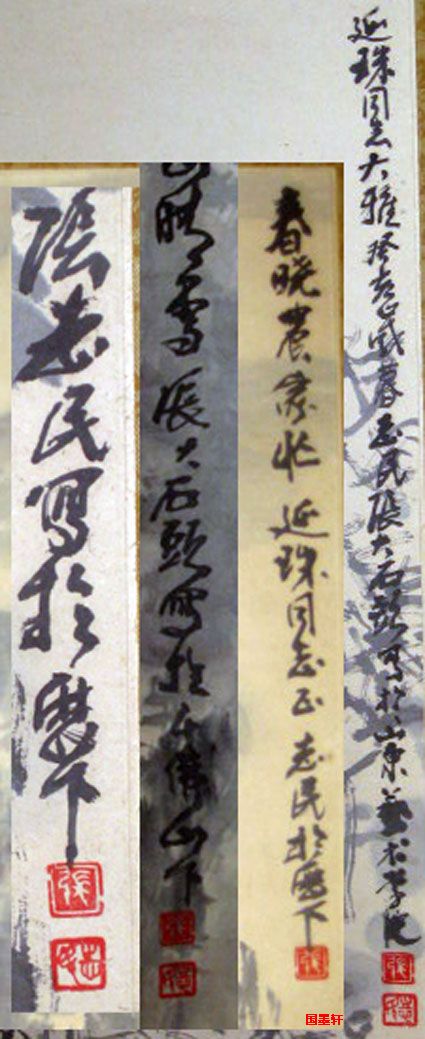 延珠同志大雅癸亥歲暮志民張大石頭寫於山東藝术學院
春晓農家忙 延珠同志正 志民於歷下
山晴雪 張大石頭寫於千佛山下
張志民寫於歷下
張
志民
国墨轩